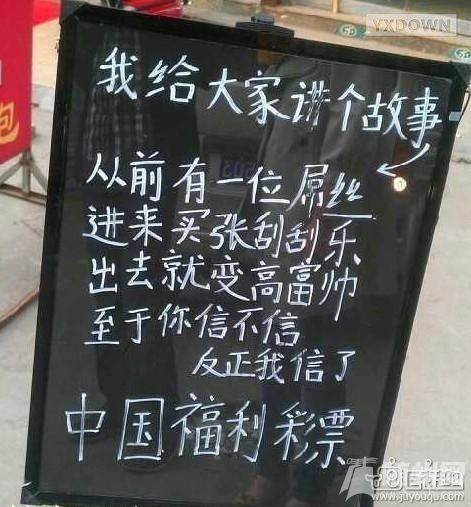 YXDOWN
包
我给大家讲个故事
从前有一位屌丝
进来买张刮刮乐
出去就变高富帅
至于你信不信
反正我信了
中国福利彩票
www.juyouqu.com